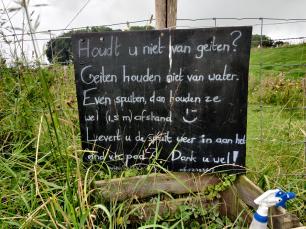 Houdt u niet van geiten?
Geiten houden niet van water.
Even spuiten, dan houden ze
wel 1,5 m afstand
Levert u de spuit weer in aan het
eind v.h. pad? Dank u wel!